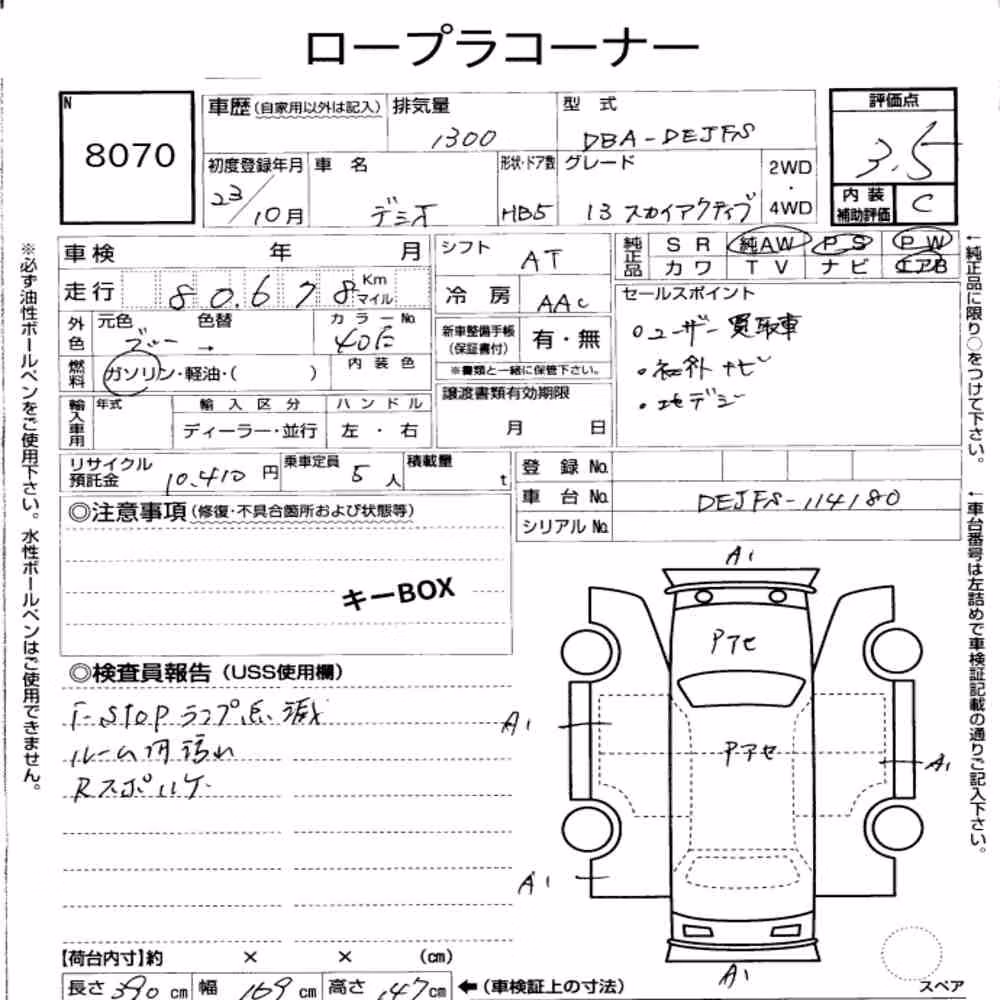 ロープラコーナー
N
8070
車歴(自家用以外は記入)
排気量
1300
型 式
DBA-DEJFS
評価点
3.5
内装補助評価
C
初度登録年月
23/10月
車 名
デミオ
形状・ドア数
HB5
グレード
13 スカイアクティブ
2WD
・
4WD
車検 年 月
走行 80,678 Km マイル
外色 元色 色替 カラーNo.
ブルー → 40E
燃料 ガソリン・軽油・( ) 内装色
輸入車用 年式 輸入区分 ハンドル
ディーラー・並行 左・右
シフト AT
冷房 AAC
新車整備手帳(保証書付) 有・無
※書類と一緒に保管下さい。
譲渡書類有効期限
月 日
純正品 SR 純AW PS PW
カワ TV ナビ エアB
セールスポイント
○ユーザー買取車
・社外ナビ
・地デジ
リサイクル預託金 10,410 円
乗車定員 5 人
積載量 t
登録No.
車台No. DEJFS-114180
シリアルNo.
◎注意事項(修復・不具合箇所および状態等)
キーBOX
◎検査員報告(USS使用欄)
i-STOPランプ点滅
ルーム内汚れ
Rスポルケ
A1
Pアセ
A1
Pアセ
A1
A1
A1
【荷台内寸】約 × × (cm)
長さ 390 cm 幅 169 cm 高さ 147 cm ←(車検証上の寸法)
スペア
※必ず油性ボールペンをご使用下さい。水性ボールペンはご使用できません。
←純正品に限り○をつけて下さい。
←車台番号は左詰めで車検証記載の通りご記入下さい。